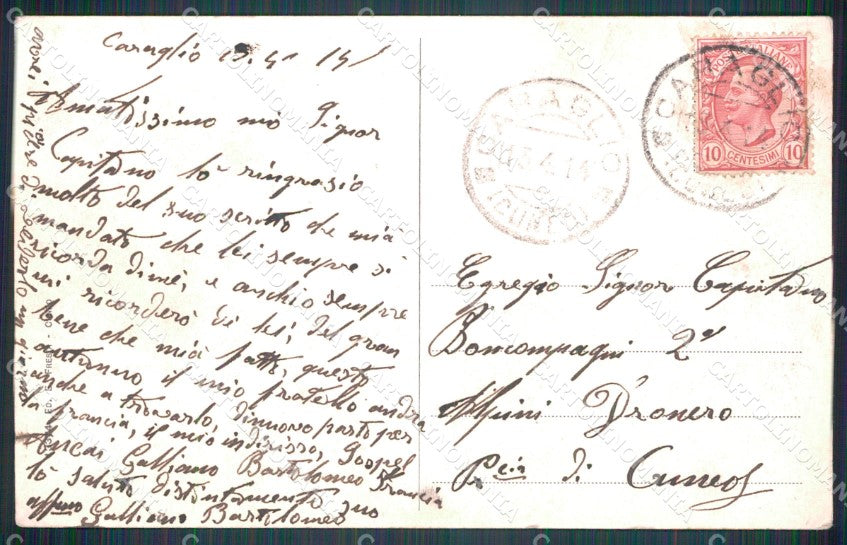 Caraglio 13. 4° 14
Amatissimo mio Signor
Capitano lo ringrasio
molto del suo scritto che mià
mandato che lei sempre si
ricorda dime, e anchio sempre
mi ricorderò di lei, del gran
bene che mià fatto, questo
autunno il mio fratello andra
anche a trovarlo, dinuovo parto per
la francia, il mio indirisso, Sospel
Galliano Bartolomeo Francia
lo saluto distintamente suo
affmo Galliano Bartolomeo
CARAGLIO
CUNEO
POSTE ITALIANE
10 CENTESIMI 10
CARAGLIO
Egregio Signor Capitano
Boncompagni 2°
Alpini Dronero
Pcia di Cuneo
CARTOLINOMANIA